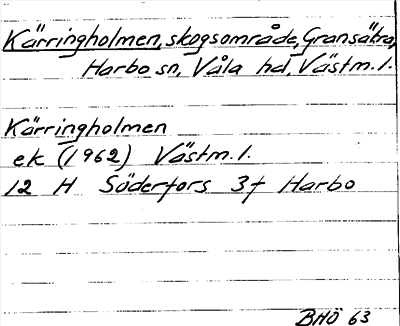 Kärringholmen, skogsområde, Gransätra,
Harbo sn, Våla hd, Västm. l.
Kärringholmen
ek (1962) Västm. l.
12 H Söderfors 3f Harbo
BHÖ 63